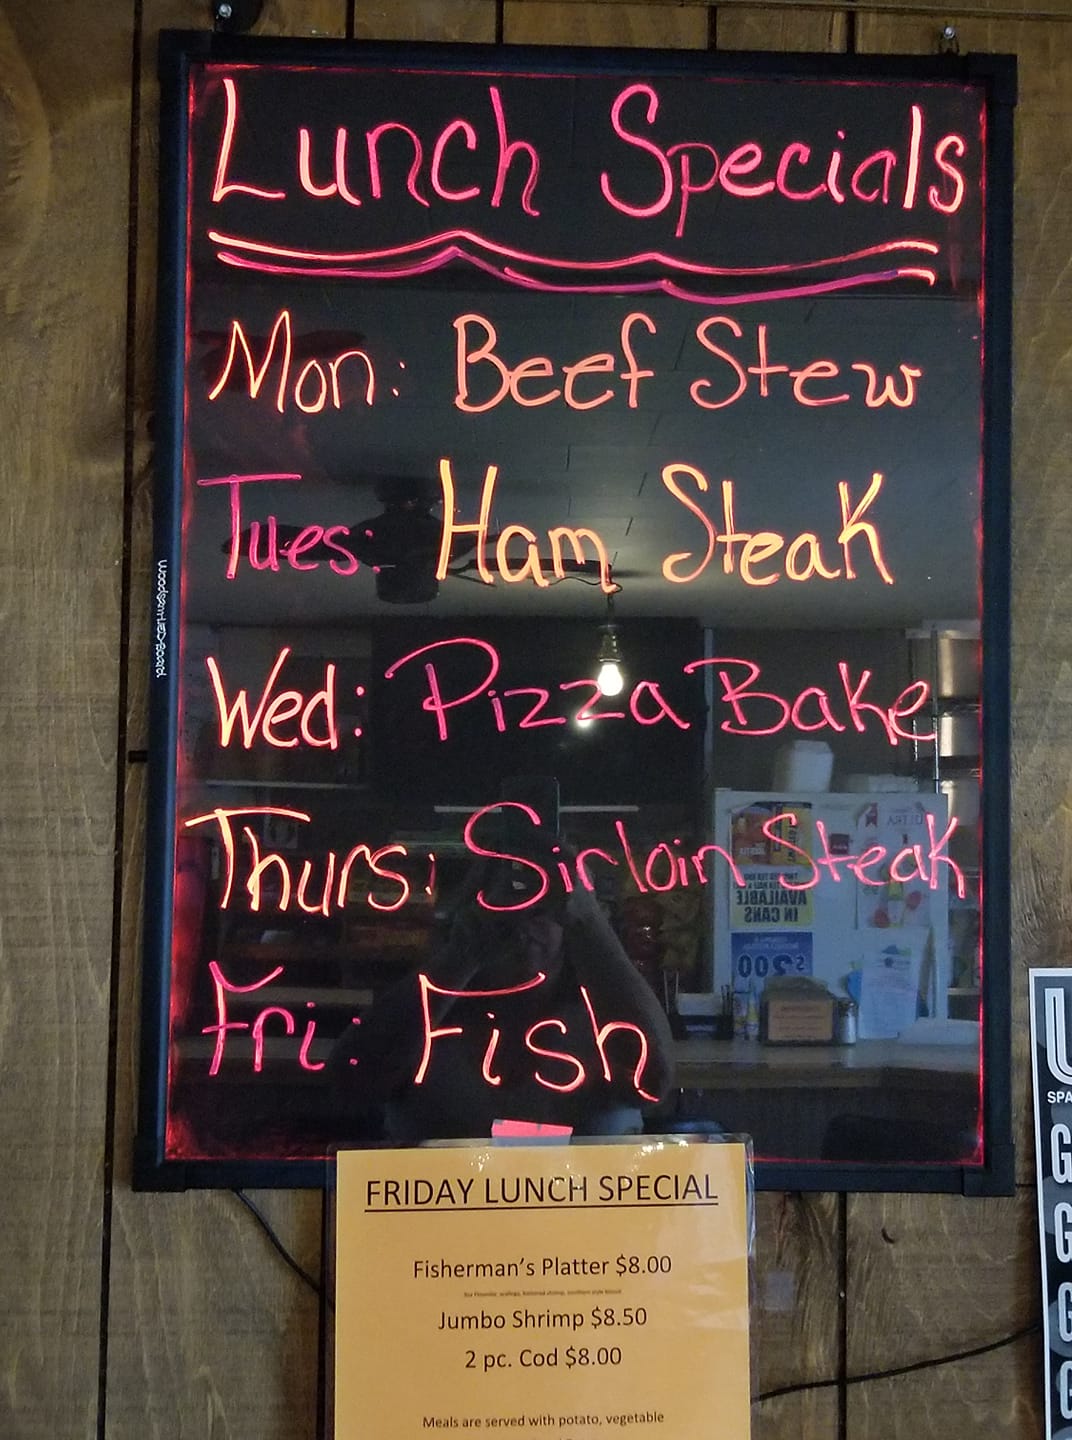 Lunch Specials
Mon: Beef Stew
Tues: Ham Steak
Wed: Pizza Bake
Thurs: Sirloin Steak
Fri: Fish
Woodsam LED Board
AVAILABLE
IN CANS
$2.00
FRIDAY LUNCH SPECIAL
Fisherman's Platter $8.00
Jumbo Shrimp $8.50
2 pc. Cod $8.00
Meals are served with potato, vegetable
U
SPA
G
G
G
G